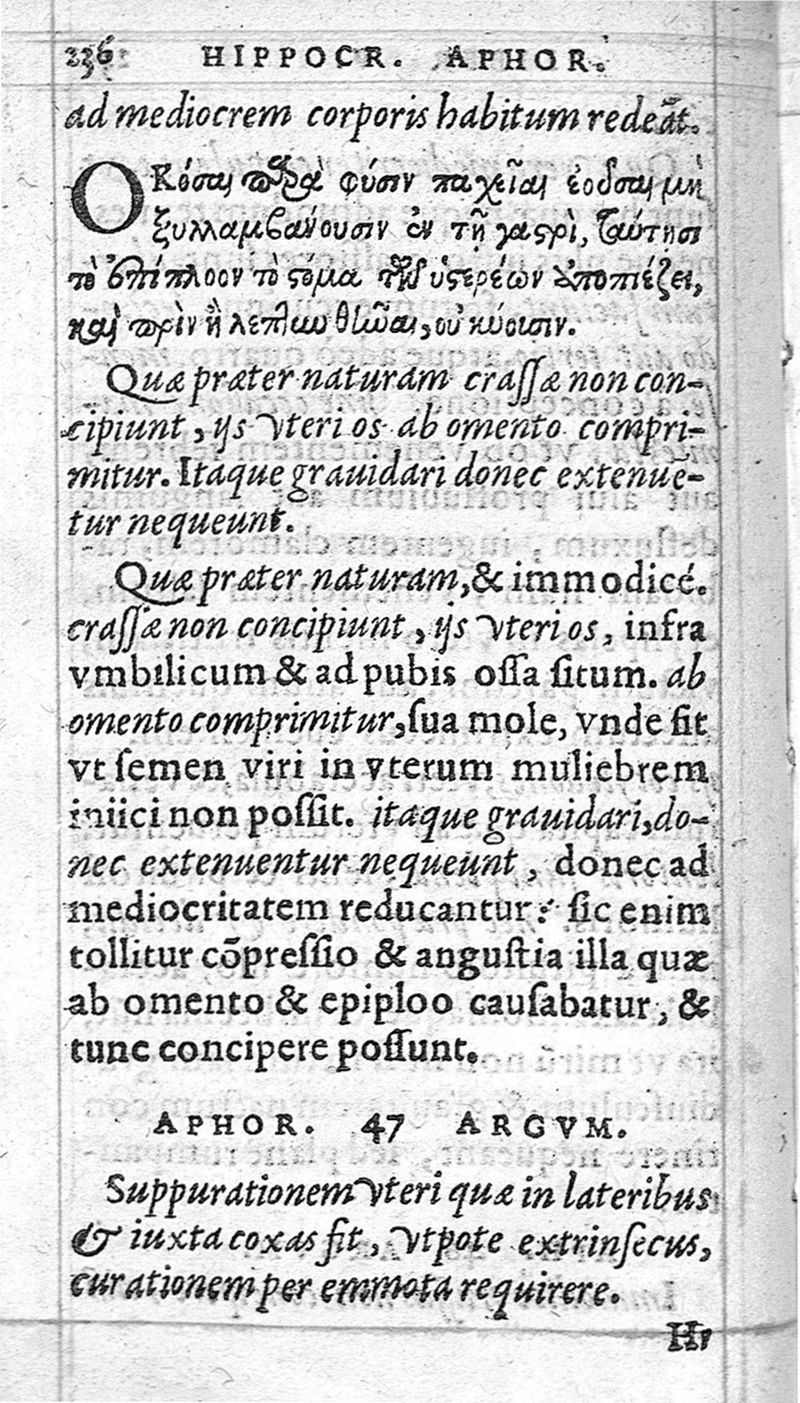 236 HIPPOCR. APHOR.
ad mediocrem corporis habitum redeāt.
ὉΚόσαι παρὰ φύσιν παχεῖαι ἐοῦσαι μὴ
ξυλλαμβάνουσιν ἐν τῇ γαστρὶ, ταύτῃσι
τὸ ἐπίπλοον τὸ στόμα τῶν ὑστερέων ἀποπιέζει,
καὶ πρὶν ἢ λεπτυνθῶσι, οὐ κύουσιν.
Quæ præter naturam crassæ non con-
cipiunt, ijs vteri os ab omento compri-
mitur. Itaque grauidari donec extenuē-
tur nequeunt.
Quæ præter naturam, & immodicé.
crassæ non concipiunt, ijs vteri os, infra
vmbilicum & ad pubis ossa situm. ab
omento comprimitur, sua mole, vnde fit
vt semen viri in vterum muliebrem
iniici non possit. itaque grauidari, do-
nec extenuentur nequeunt, donec ad
mediocritatem reducantur: sic enim
tollitur cōpressio & angustia illa quæ
ab omento & epiploo causabatur, &
tunc concipere possunt.
APHOR. 47 ARGVM.
Suppurationem vteri quæ in lateribus
& iuxta coxas fit, vtpote extrinsecus,
curationem per emmota requirere.